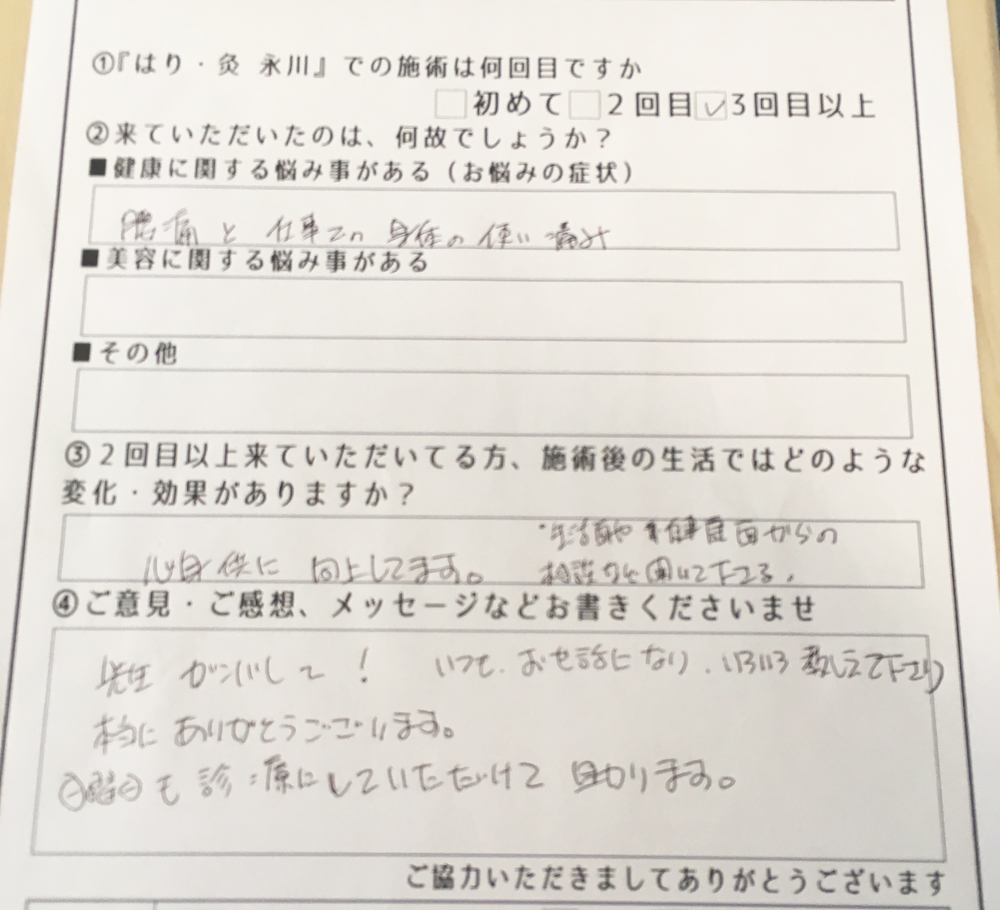 ①『はり・灸 永川』での施術は何回目ですか
初めて 2回目 ✓3回目以上
②来ていただいたのは、何故でしょうか？
■健康に関する悩み事がある（お悩みの症状）
腰痛と 仕事での 身体の 使い痛み
■美容に関する悩み事がある
■その他
③2回目以上来ていただいてる方、施術後の生活ではどのような
変化・効果がありますか？
・生活面や 健康面からの
心身供に 向上してます。 相談などを聞いて下さる。
④ご意見・ご感想、メッセージなどお書きくださいませ
先生 ガンバして！ いつも、お世話になり、いろいろ教えて下さり
本当に ありがとうございます。
日曜日も 診療にしていただけて 助かります。
ご協力いただきましてありがとうございます